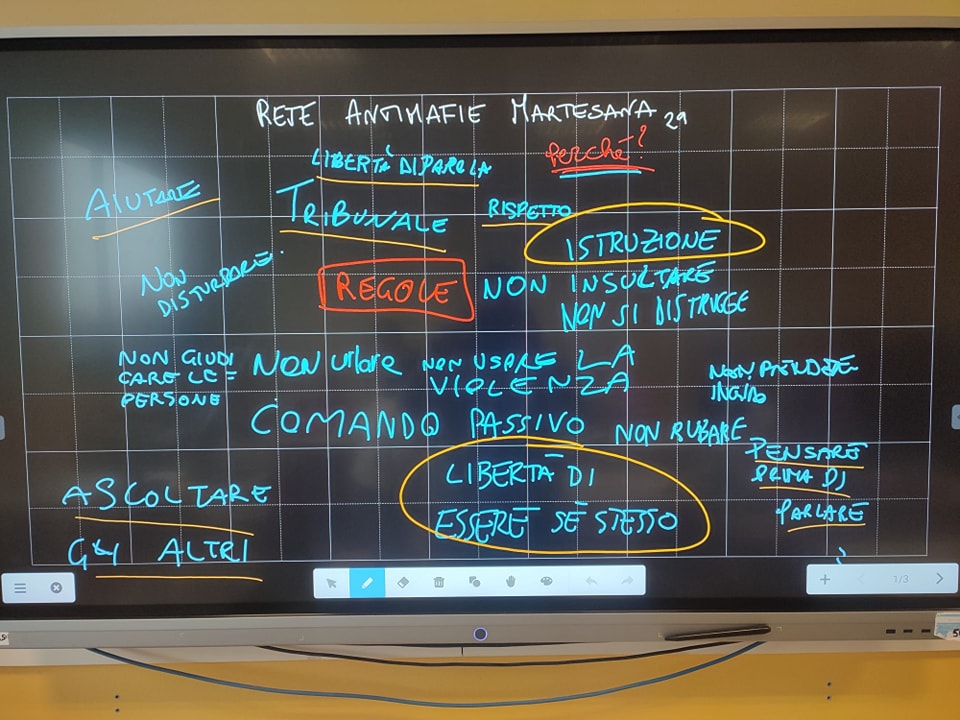 RETE ANTIMAFIE MARTESANA 2a
LIBERTÀ DI PAROLA
Perché?
AIUTARE
TRIBUNALE
RISPETTO
ISTRUZIONE
NON
DISTURBARE.
REGOLE
NON INSULTARE
NON SI DISTRUGGE
NON GIUDI
CARE LE =
PERSONE
NON urlare
NON USARE LA
VIOLENZA
NON PRENDERE
IN GIRO
COMANDO PASSIVO
NON RUBARE
LIBERTÀ DI
ESSERE SÉ STESSO
PENSARE
PRIMA DI
PARLARE
ASCOLTARE
GLI ALTRI
1/3